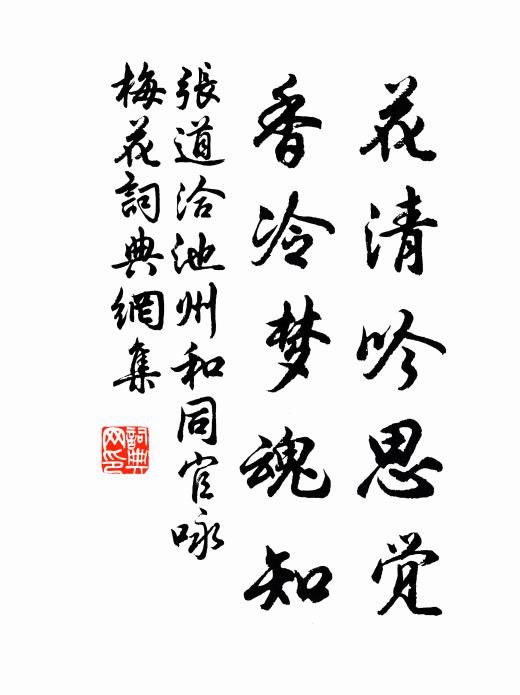 花清吟思觉
香冷梦魂知
張道洽池州和同官咏
梅花詞典網集
詞典网印